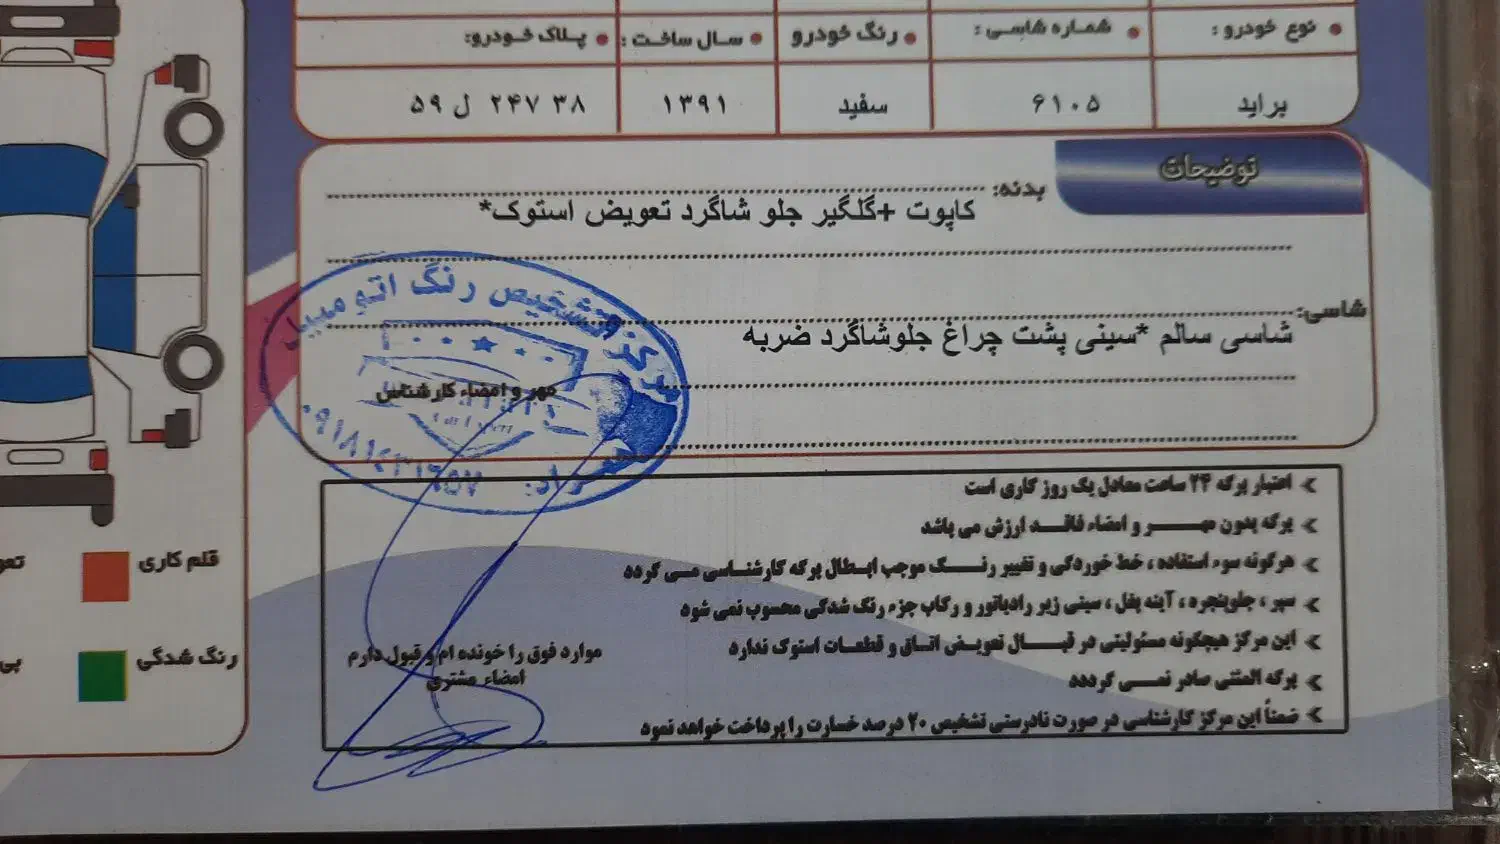 نوع خودرو :
شماره شاسی :
رنگ خودرو
سال ساخت :
پلاک خودرو:
پراید
۶۱۰۵
سفید
۱۳۹۱
۵۹ ل ۲۴۷ ۳۸
توضیحات
بدنه:
کاپوت +گلگیر جلو شاگرد تعویض استوک*
شاسی:
شاسی سالم *سینی پشت چراغ جلوشاگرد ضربه
مرکز تشخیص رنگ اتومبیل
مهر و امضاء کارشناس
اعتبار برگه ۲۴ ساعت معادل یک روز کاری است
برگه بدون مهر و امضاء فاقد ارزش می باشد
هرگونه سوء استفاده ، خط خوردگی و تغییر رنگ موجب ابطال برگه کارشناسی می گردد
سپر ، جلوپنجره ، آینه بغل ، سینی زیر رادیاتور و رکاب جزء رنگ شدگی محسوب نمی شود
این مرکز هیچگونه مسئولیتی در قبال تعویض اتاق و قطعات استوک ندارد
برگه المثنی صادر نمی گردد
ضمناً این مرکز کارشناسی در صورت نادرستی تشخیص ۲۰ درصد خسارت را پرداخت خواهد نمود
موارد فوق را خونده ام و قبول دارم
امضاء مشتری
قلم کاری
رنگ شدگی